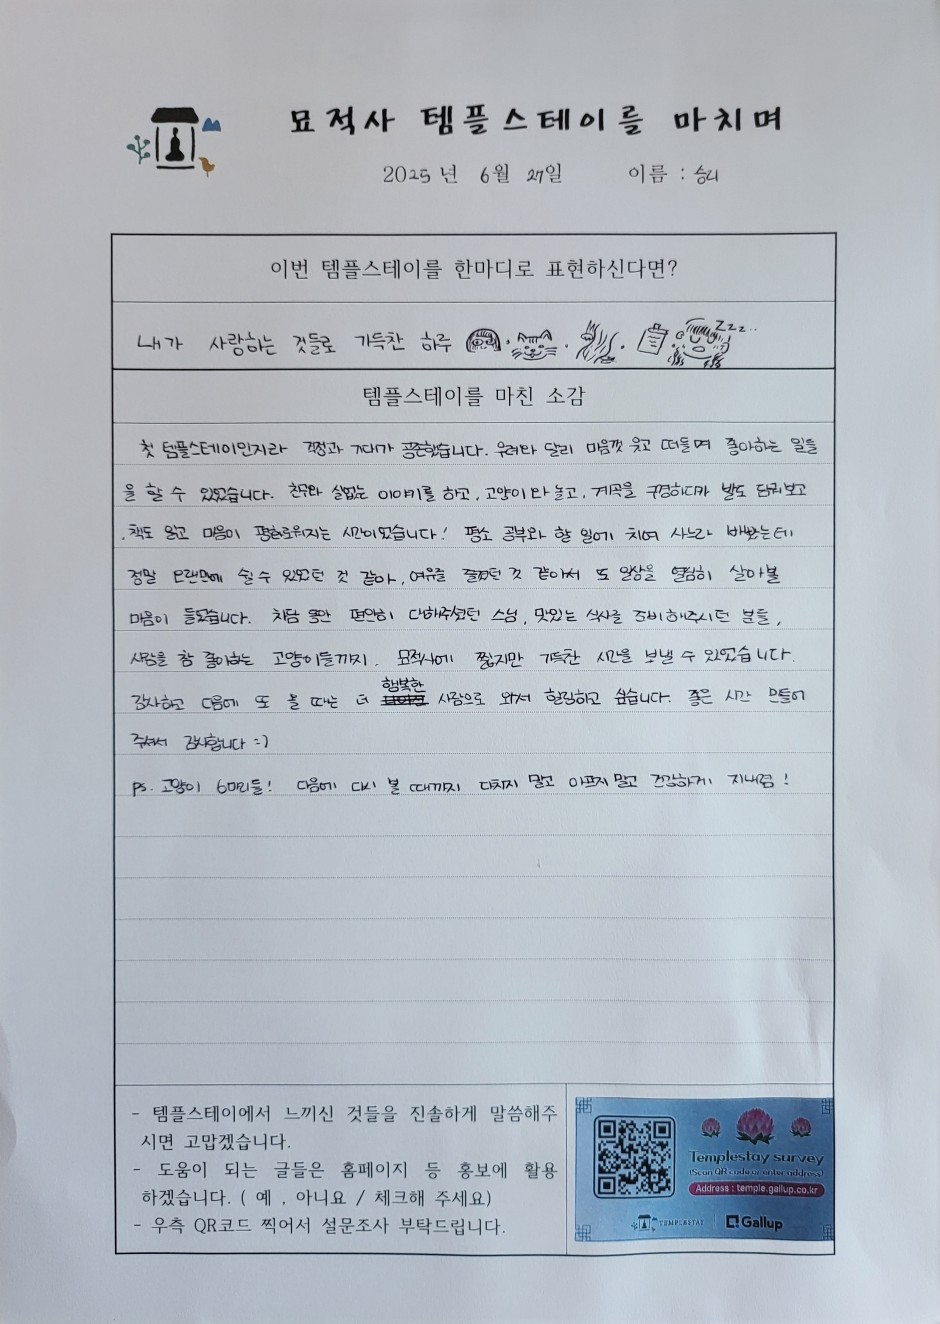 묘적사 템플스테이를 마치며
2025년 6월 27일 이름 : 승니
이번 템플스테이를 한마디로 표현하신다면?
내가 사랑하는 것들로 가득찬 하루 zzz..
템플스테이를 마친 소감
첫 템플스테이인지라 걱정과 기대가 공존했습니다. 우려와 달리 마음껏 웃고 떠들며 좋아하는 일들
을 할 수 있었습니다. 친구와 실없는 이야기를 하고, 고양이와 놀고, 계곡을 구경하다가 발도 담궈보고
, 책도 읽고 마음이 평화로워지는 시간이었습니다! 평소 공부와 할 일에 치여 사느라 바빴는데
정말 오랜만에 쉴 수 있었던 것 같아, 여유를 즐겼던 것 같아서 또 일상을 열심히 살아볼
마음이 들었습니다. 차담 동안 편안히 대해주셨던 스님, 맛있는 식사를 준비해주시던 분들,
사람을 참 좋아하는 고양이들까지. 묘적사에 짧지만 가득찬 시간을 보낼 수 있었습니다.
감사하고 다음에 또 올 때는 더 행복한 사람으로 와서 힐링하고 싶습니다. 좋은 시간 만들어
주셔서 감사합니다 =)
ps. 고양이 6마리들! 다음에 다시 볼 때까지 다치지 말고 아프지 말고 건강하게 지내렴!
- 템플스테이에서 느끼신 것들을 진솔하게 말씀해주
시면 고맙겠습니다.
- 도움이 되는 글들은 홈페이지 등 홍보에 활용
하겠습니다. ( 예 , 아니요 / 체크해 주세요)
- 우측 QR코드 찍어서 설문조사 부탁드립니다.
Templestay survey
(Scan QR code or enter address)
Address : temple.gallup.co.kr
TEMPLESTAY Gallup